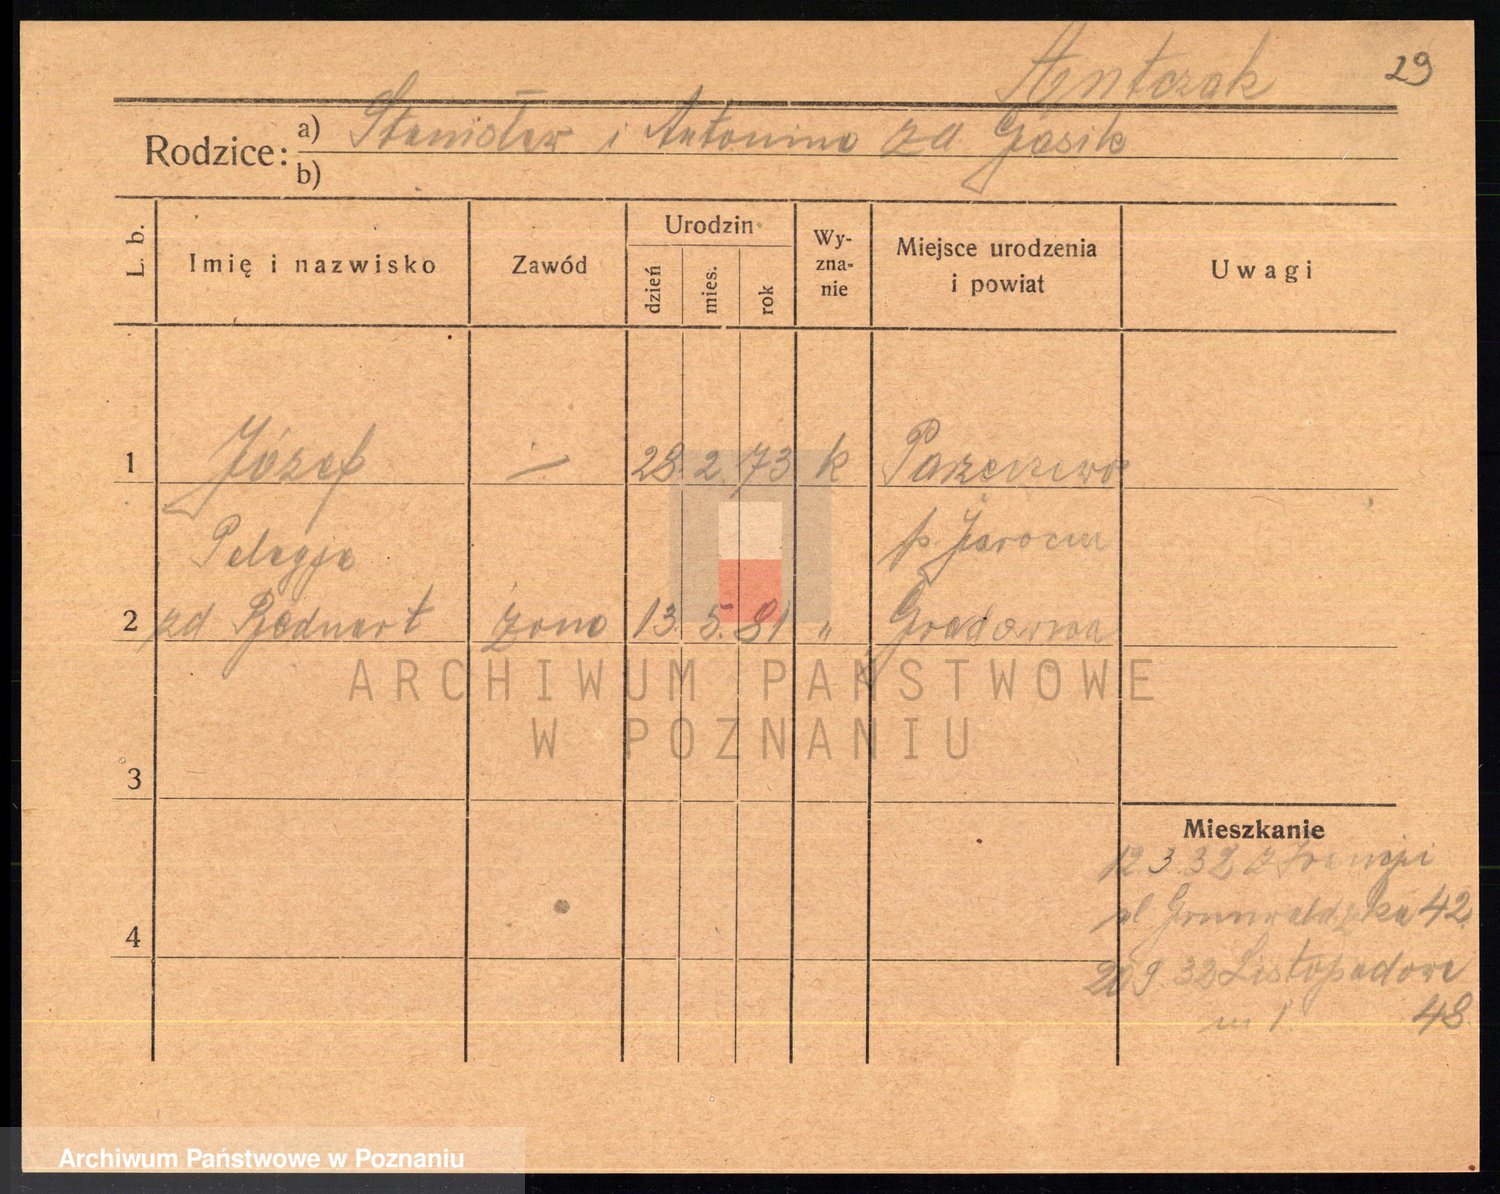 Antczak 29
Rodzice: a) Stanisław i Antonina zd Gąsik
b)
L. b. Imię i nazwisko Zawód Urodzin dzień mies. rok Wy-zna-nie Miejsce urodzenia i powiat Uwagi
1 Józef — 28 2. 73 k Parzenczewo
p. Jarocin
Pelagja
2 zd Bednart żona 13 5. 81 " Gradowna
3
4
Mieszkanie
12.3.32 z Francji
ul Grunwaldzka 42
20 9. 32 Listopadowa
m 1 48.
ARCHIWUM PAŃSTWOWE
W POZNANIU
Archiwum Państwowe w Poznaniu